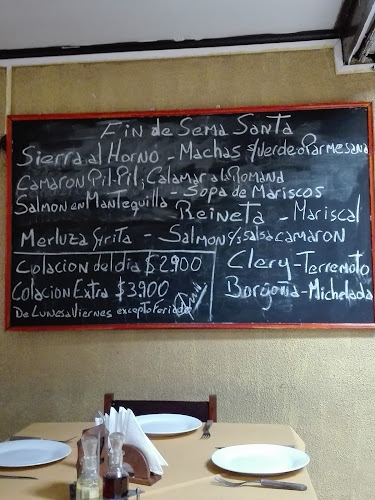 Fin de Sema Santa
Sierra al Horno - Machas s/verde o Parmesana
Camaron Pil-Pil, Calamar a la Romana
Salmon en Mantequilla - Sopa de Mariscos
Reineta - Mariscal
Merluza Frita - Salmon c/salsa camaron
Colacion del dia $2.900
Colacion Extra $3.900
De Lunes a Viernes excepto Feriado
Clery - Terremoto
Borgoña - Michelada